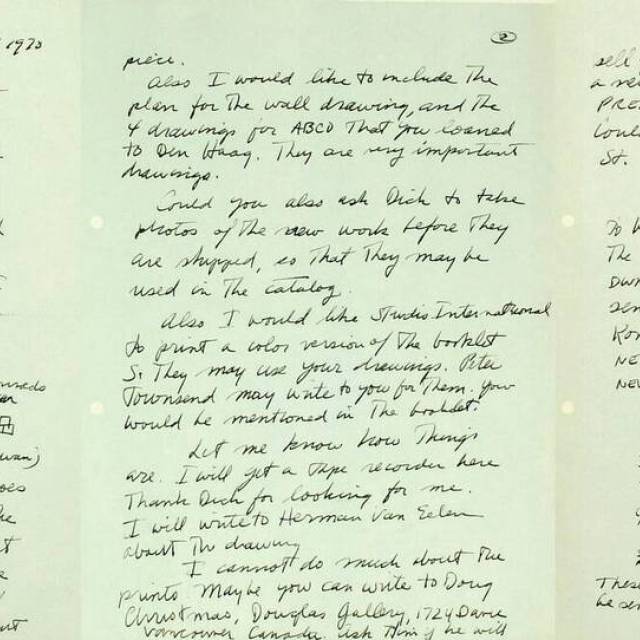 1970
2
piece.
Also I would like to include The
plan for The wall drawing, and The
4 drawings for ABCD That you loaned
to Den Haag. They are very important
drawings.
Could you also ask Dick to take
photos of the new work before They
are shipped, so That They may be
used in The catalog.
Also I would like Studio International
to print a color version of The booklet
S. They may use your drawings. Peter
Townsend may write to you for Them. You
would be mentioned in The booklet.
Let me know how Things
are. I will get a Tape recorder here
Thank Dick for looking for me.
I will write to Herman van Eelen
about The drawing
I cannot do much about The
prints Maybe you can write to Doug
Christmas, Douglas Gallery, 1724 Davie
Vancouver Canada. Ask Him if he will
sell
a
PRE
Could
St.
To
The
DW
sen
Kon
NE
NEW
These
be sen